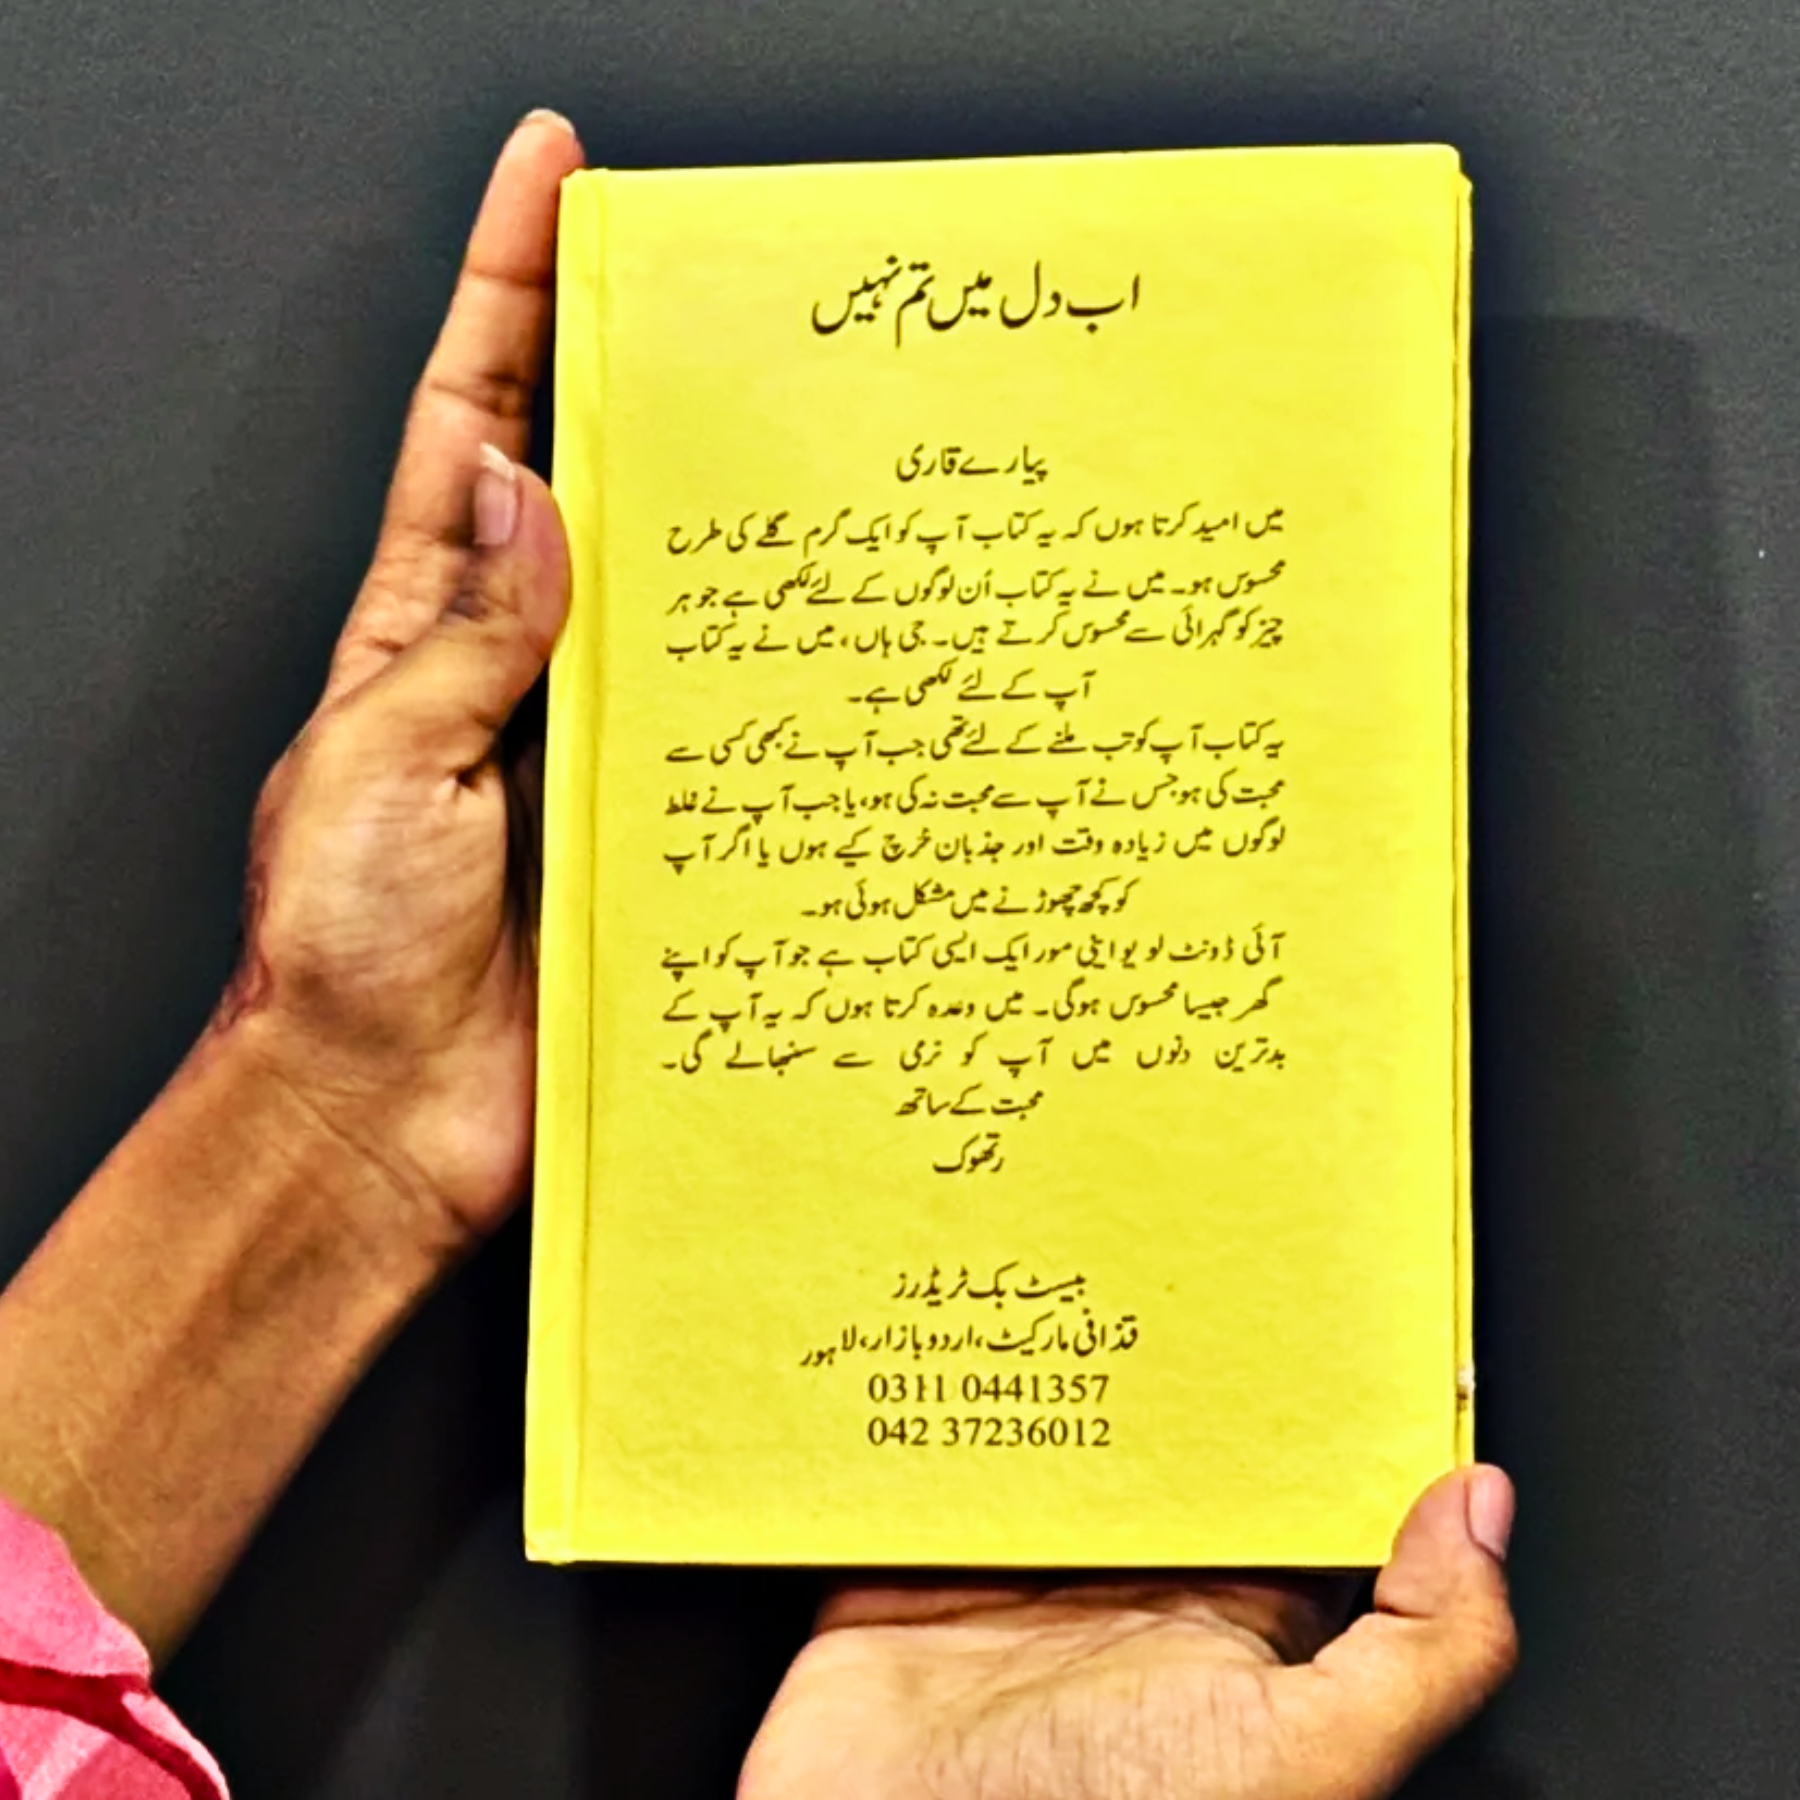 اب دل میں تم نہیں
پیارے قاری
میں امید کرتا ہوں کہ یہ کتاب آپ کو ایک گرم گلے کی طرح
محسوس ہو۔ میں نے یہ کتاب اُن لوگوں کے لئے لکھی ہے جو ہر
چیز کو گہرائی سے محسوس کرتے ہیں۔ جی ہاں، میں نے یہ کتاب
آپ کے لئے لکھی ہے۔
یہ کتاب آپ کو تب ملنے کے لئے تھی جب آپ نے کبھی کسی سے
محبت کی ہو جس نے آپ سے محبت نہ کی ہو، یا جب آپ نے غلط
لوگوں میں زیادہ وقت اور جذبان خرچ کیے ہوں یا اگر آپ
کو کچھ چھوڑنے میں مشکل ہوئی ہو۔
آئی ڈونٹ لو یو اینی مور ایک ایسی کتاب ہے جو آپ کو اپنے
گھر جیسا محسوس ہوگی۔ میں وعدہ کرتا ہوں کہ یہ آپ کے
بدترین دنوں میں آپ کو نرمی سے سنبھالے گی۔
محبت کے ساتھ
رتھوک
بیسٹ بک ٹریڈرز
قذافی مارکیٹ، اردو بازار، لاہور
0311 0441357
042 37236012